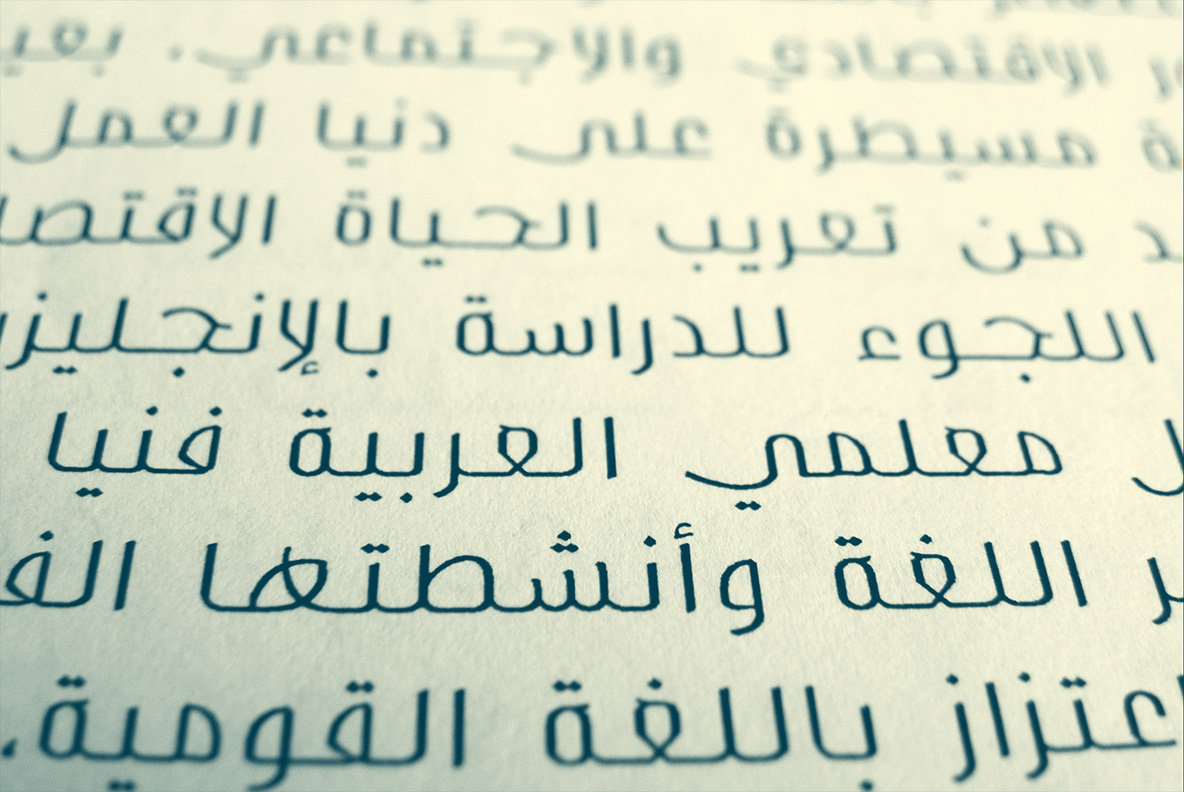 الاقتصادي والاجتماعي، بعي
ة مسيطرة على دنيا العمل
د من تعريب الحياة الاقتصا
اللجوء للدراسة بالإنجليز
ل معلمي العربية فنيا
ر اللغة وأنشطتها الف
عتزاز باللغة القومية،